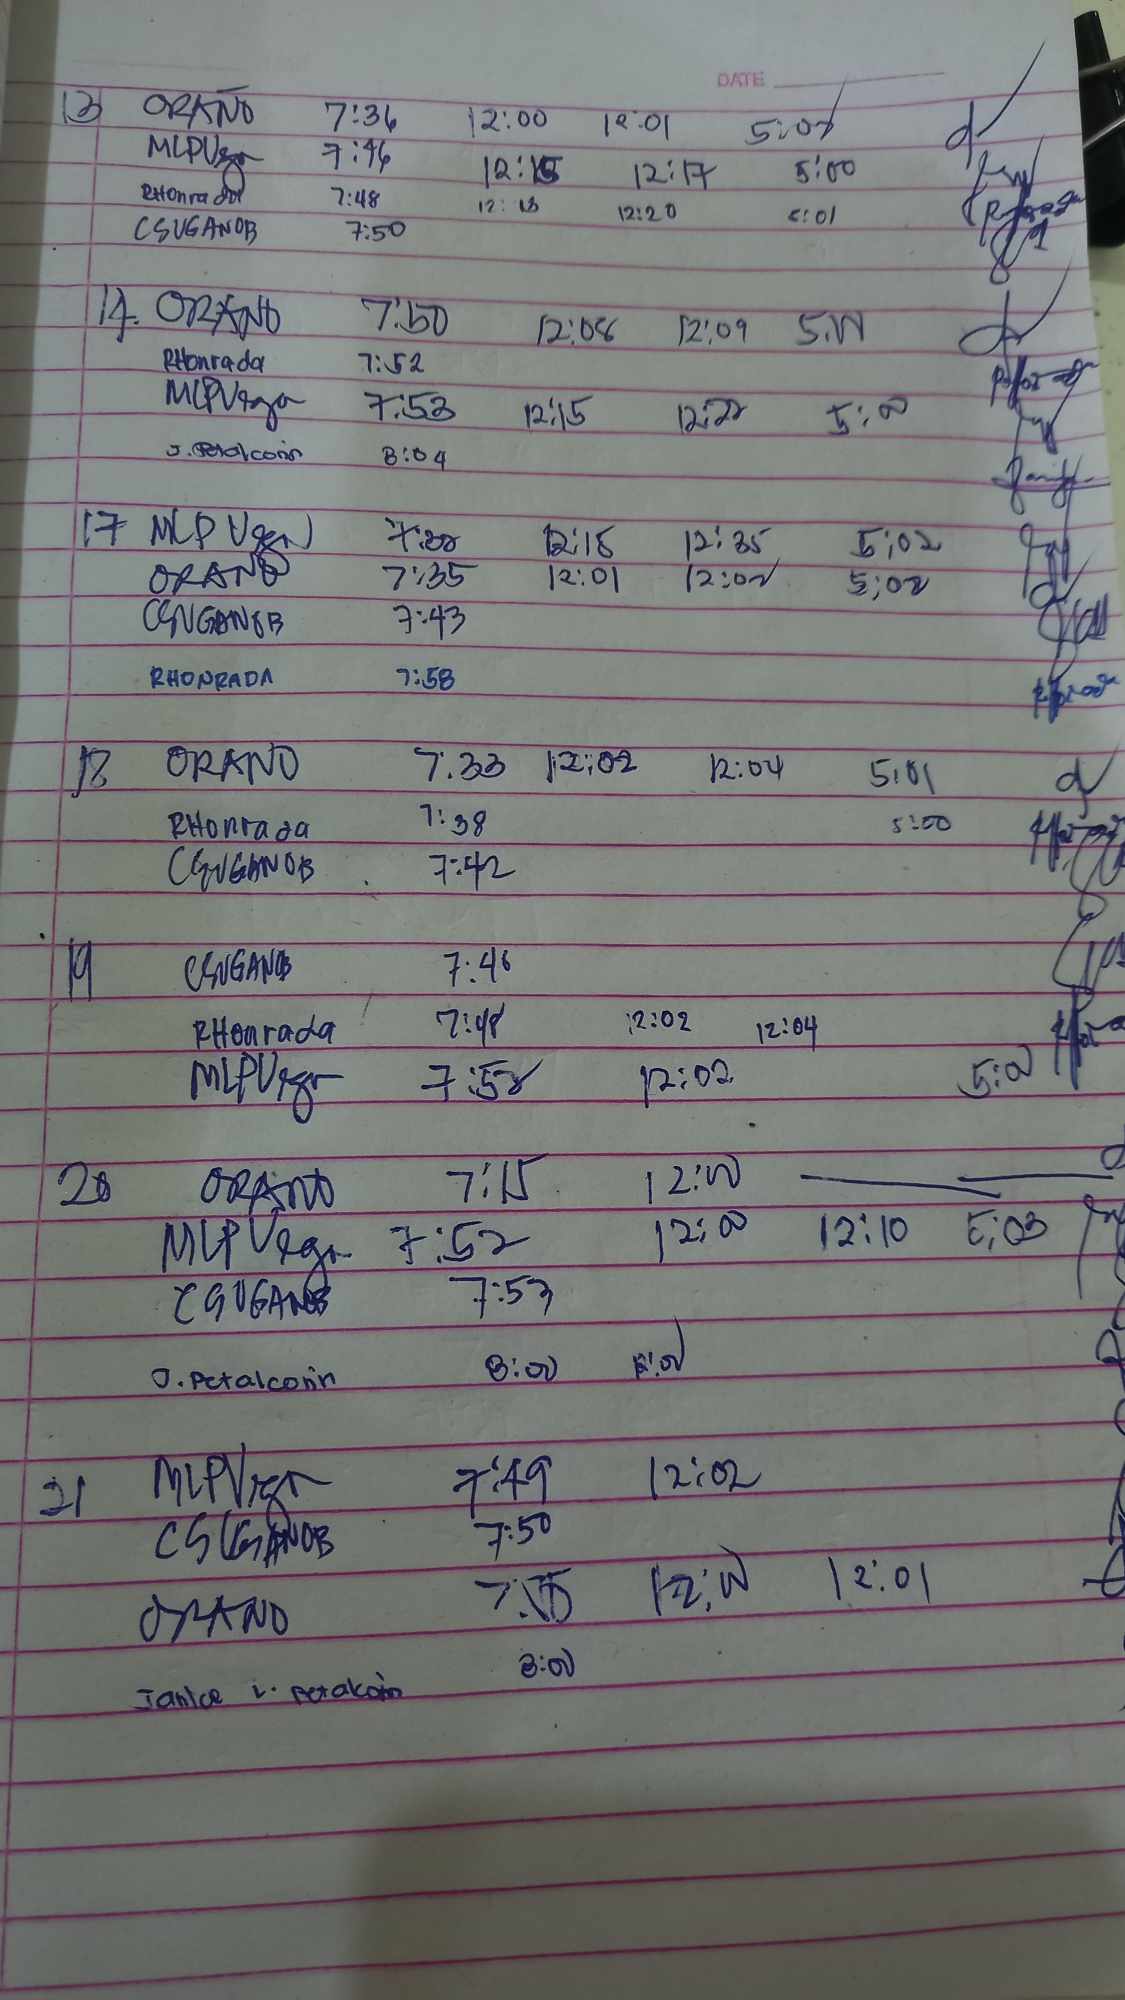 DATE
13 ORAÑO 7:36 12:00 12:01 5:02
MLPVega 7:46 12:15 12:17 5:00
RHonrada 7:48 12:18 12:20 5:01
CSUGANOB 7:50
14. ORANO 7:50 12:08 12:09 5:00
RHonrada 7:52
MLPVega 7:53 12:15 12:22 5:00
J. Petalcorin 8:04
17 MLPVega 12:15 12:35 5:02
ORANO 7:35 12:01 12:02 5:02
CSUGANOB 7:43
RHONRADA 7:58
18 ORANO 7:33 12:02 12:04 5:01
RHonrada 7:38 5:00
CSUGANOB 7:42
19 CSUGANOB 7:46
RHonrada 7:48 12:02 12:04
MLPVega 7:52 12:02 5:00
20 ORANO 7:15 12:00
MLPVega 7:52 12:00 12:10 5:03
CSUGANOB 7:53
J. Petalcorin 8:00
21 MLPVega 7:49 12:02
CSUGANOB 7:50
ORANO 12:00 12:01
Janice L. Petalcorin 8:00